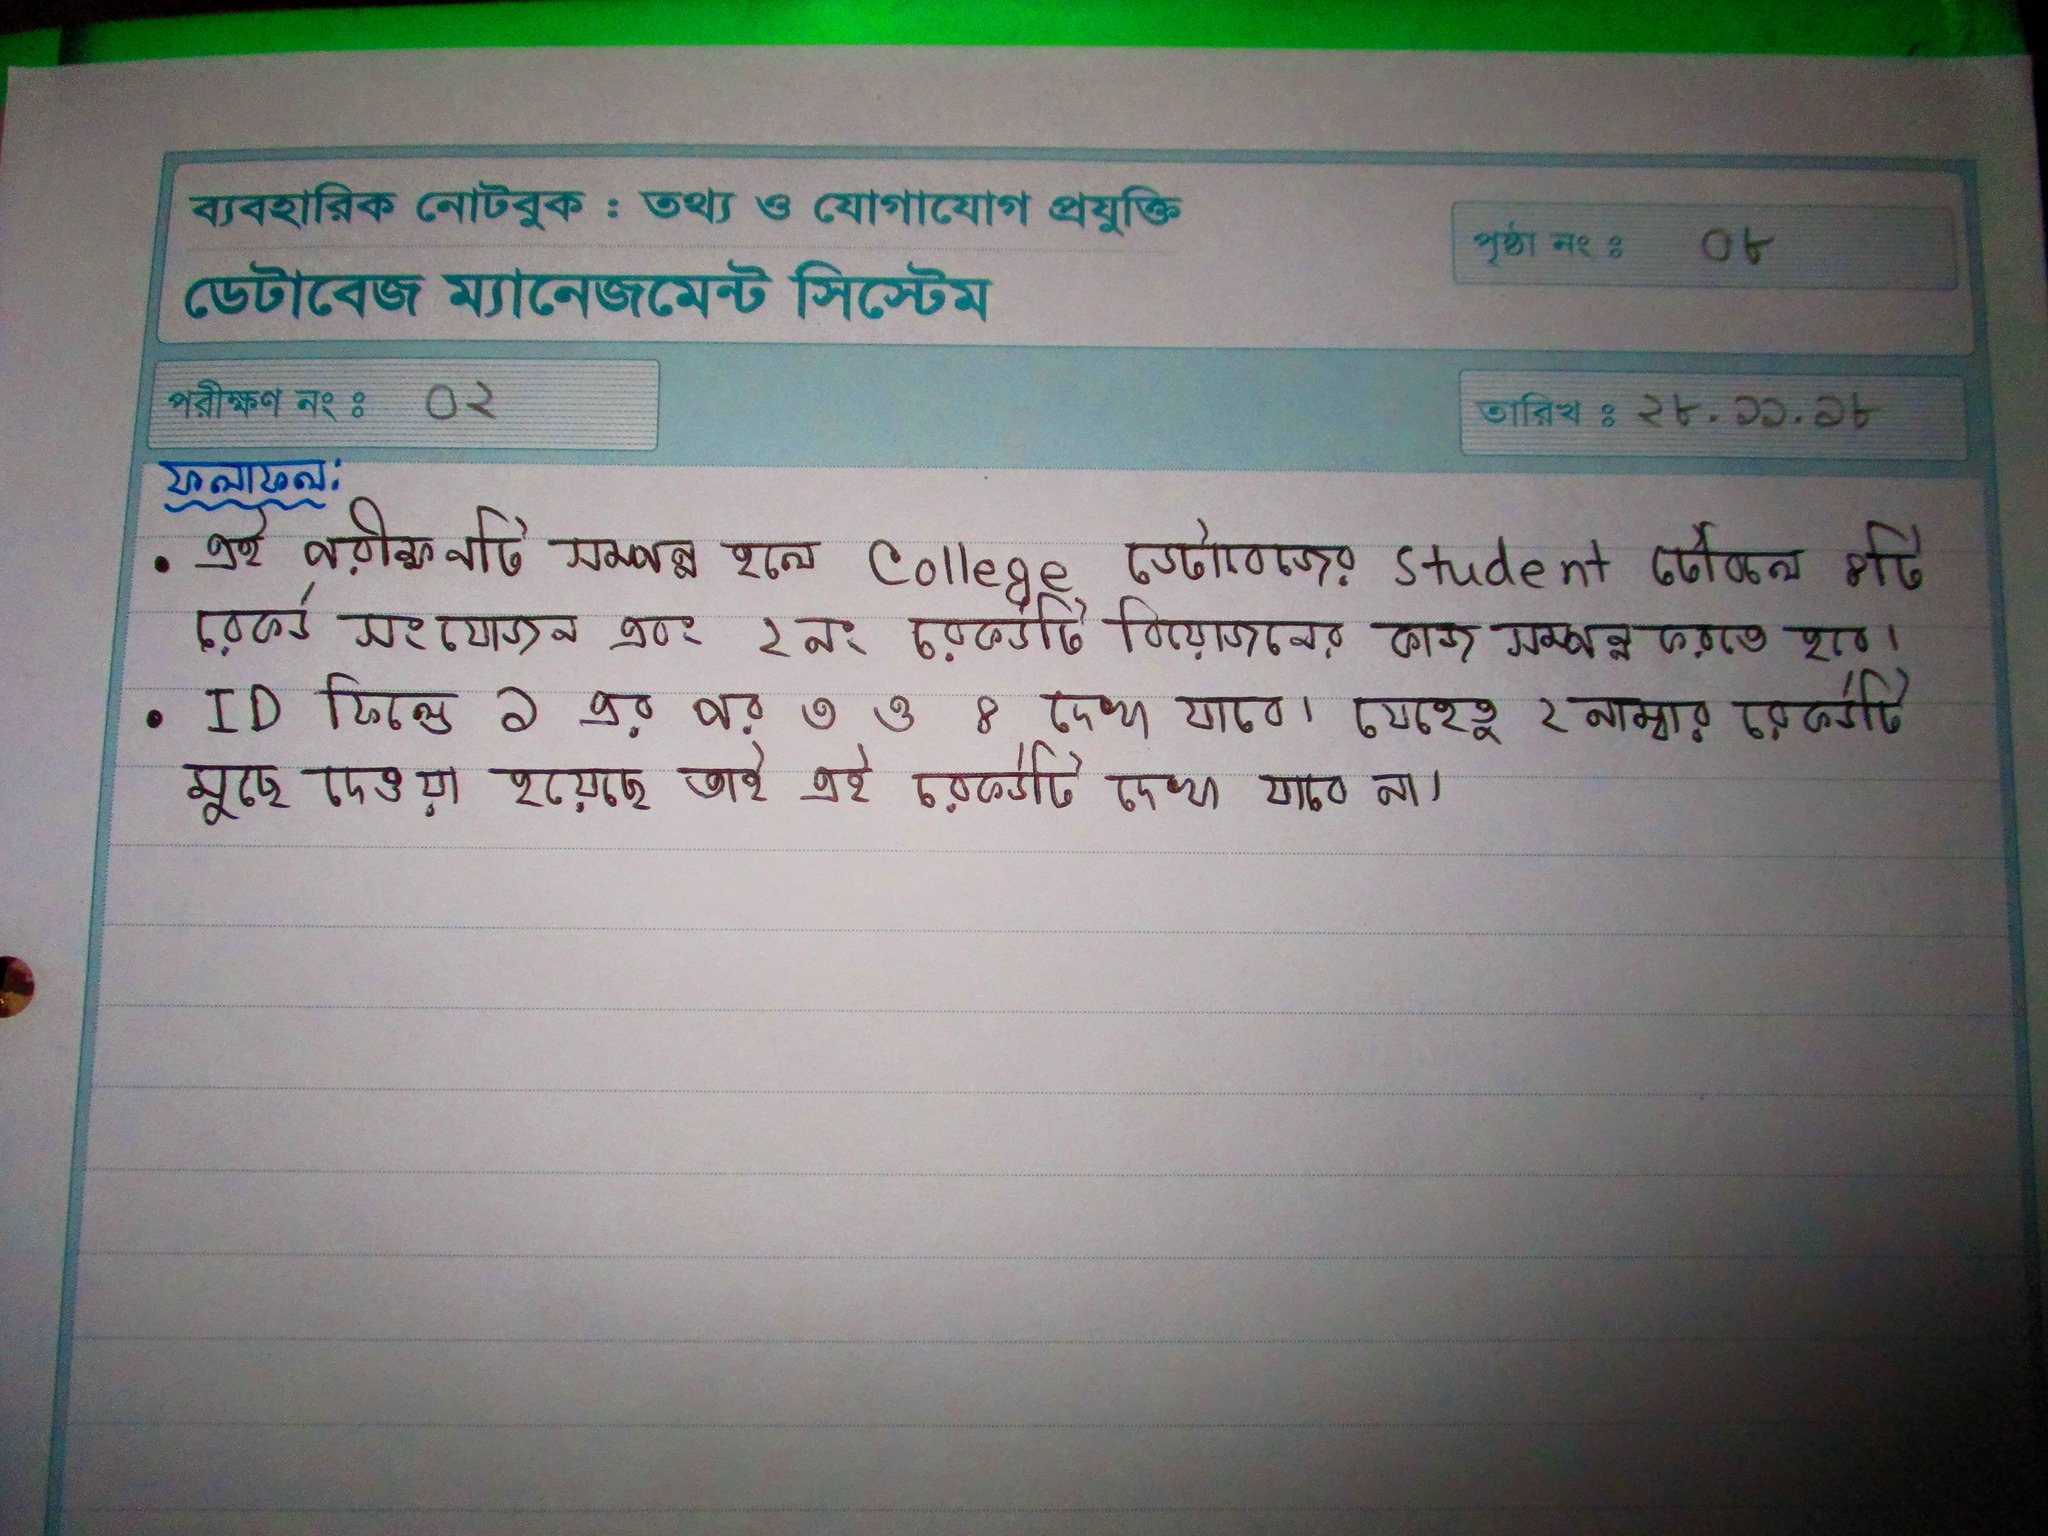 ব্যবহারিক নোটবুক : তথ্য ও যোগাযোগ প্রযুক্তি
পৃষ্ঠা নং ঃ ০৮
ডেটাবেজ ম্যানেজমেন্ট সিস্টেম
পরীক্ষণ নং ঃ ০২
তারিখ ঃ ২৮.১১.১৮
ফলাফল:
• এই পরীক্ষনটি সম্পন্ন হলে College ডেটাবেজের student টেবিলে ৪টি
রেকর্ড সংযোজন এবং ২নং রেকর্ডটি বিয়োজনের কাজ সম্পন্ন করতে হবে।
• ID ফিল্ডে ১ এর পর ৩ ও ৪ দেখা যাবে। যেহেতু ২ নাম্বার রেকর্ডটি
মুছে দেওয়া হয়েছে তাই এই রেকর্ডটি দেখা যাবে না।